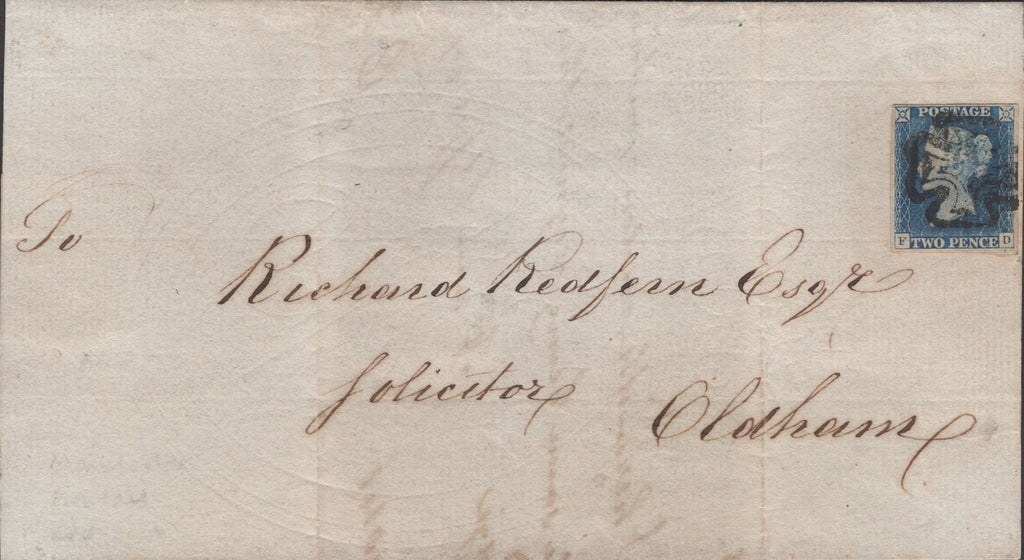 POSTAGE
F TWO PENCE D
To
Richard Redfern Esqr
Solicitor
Oldham